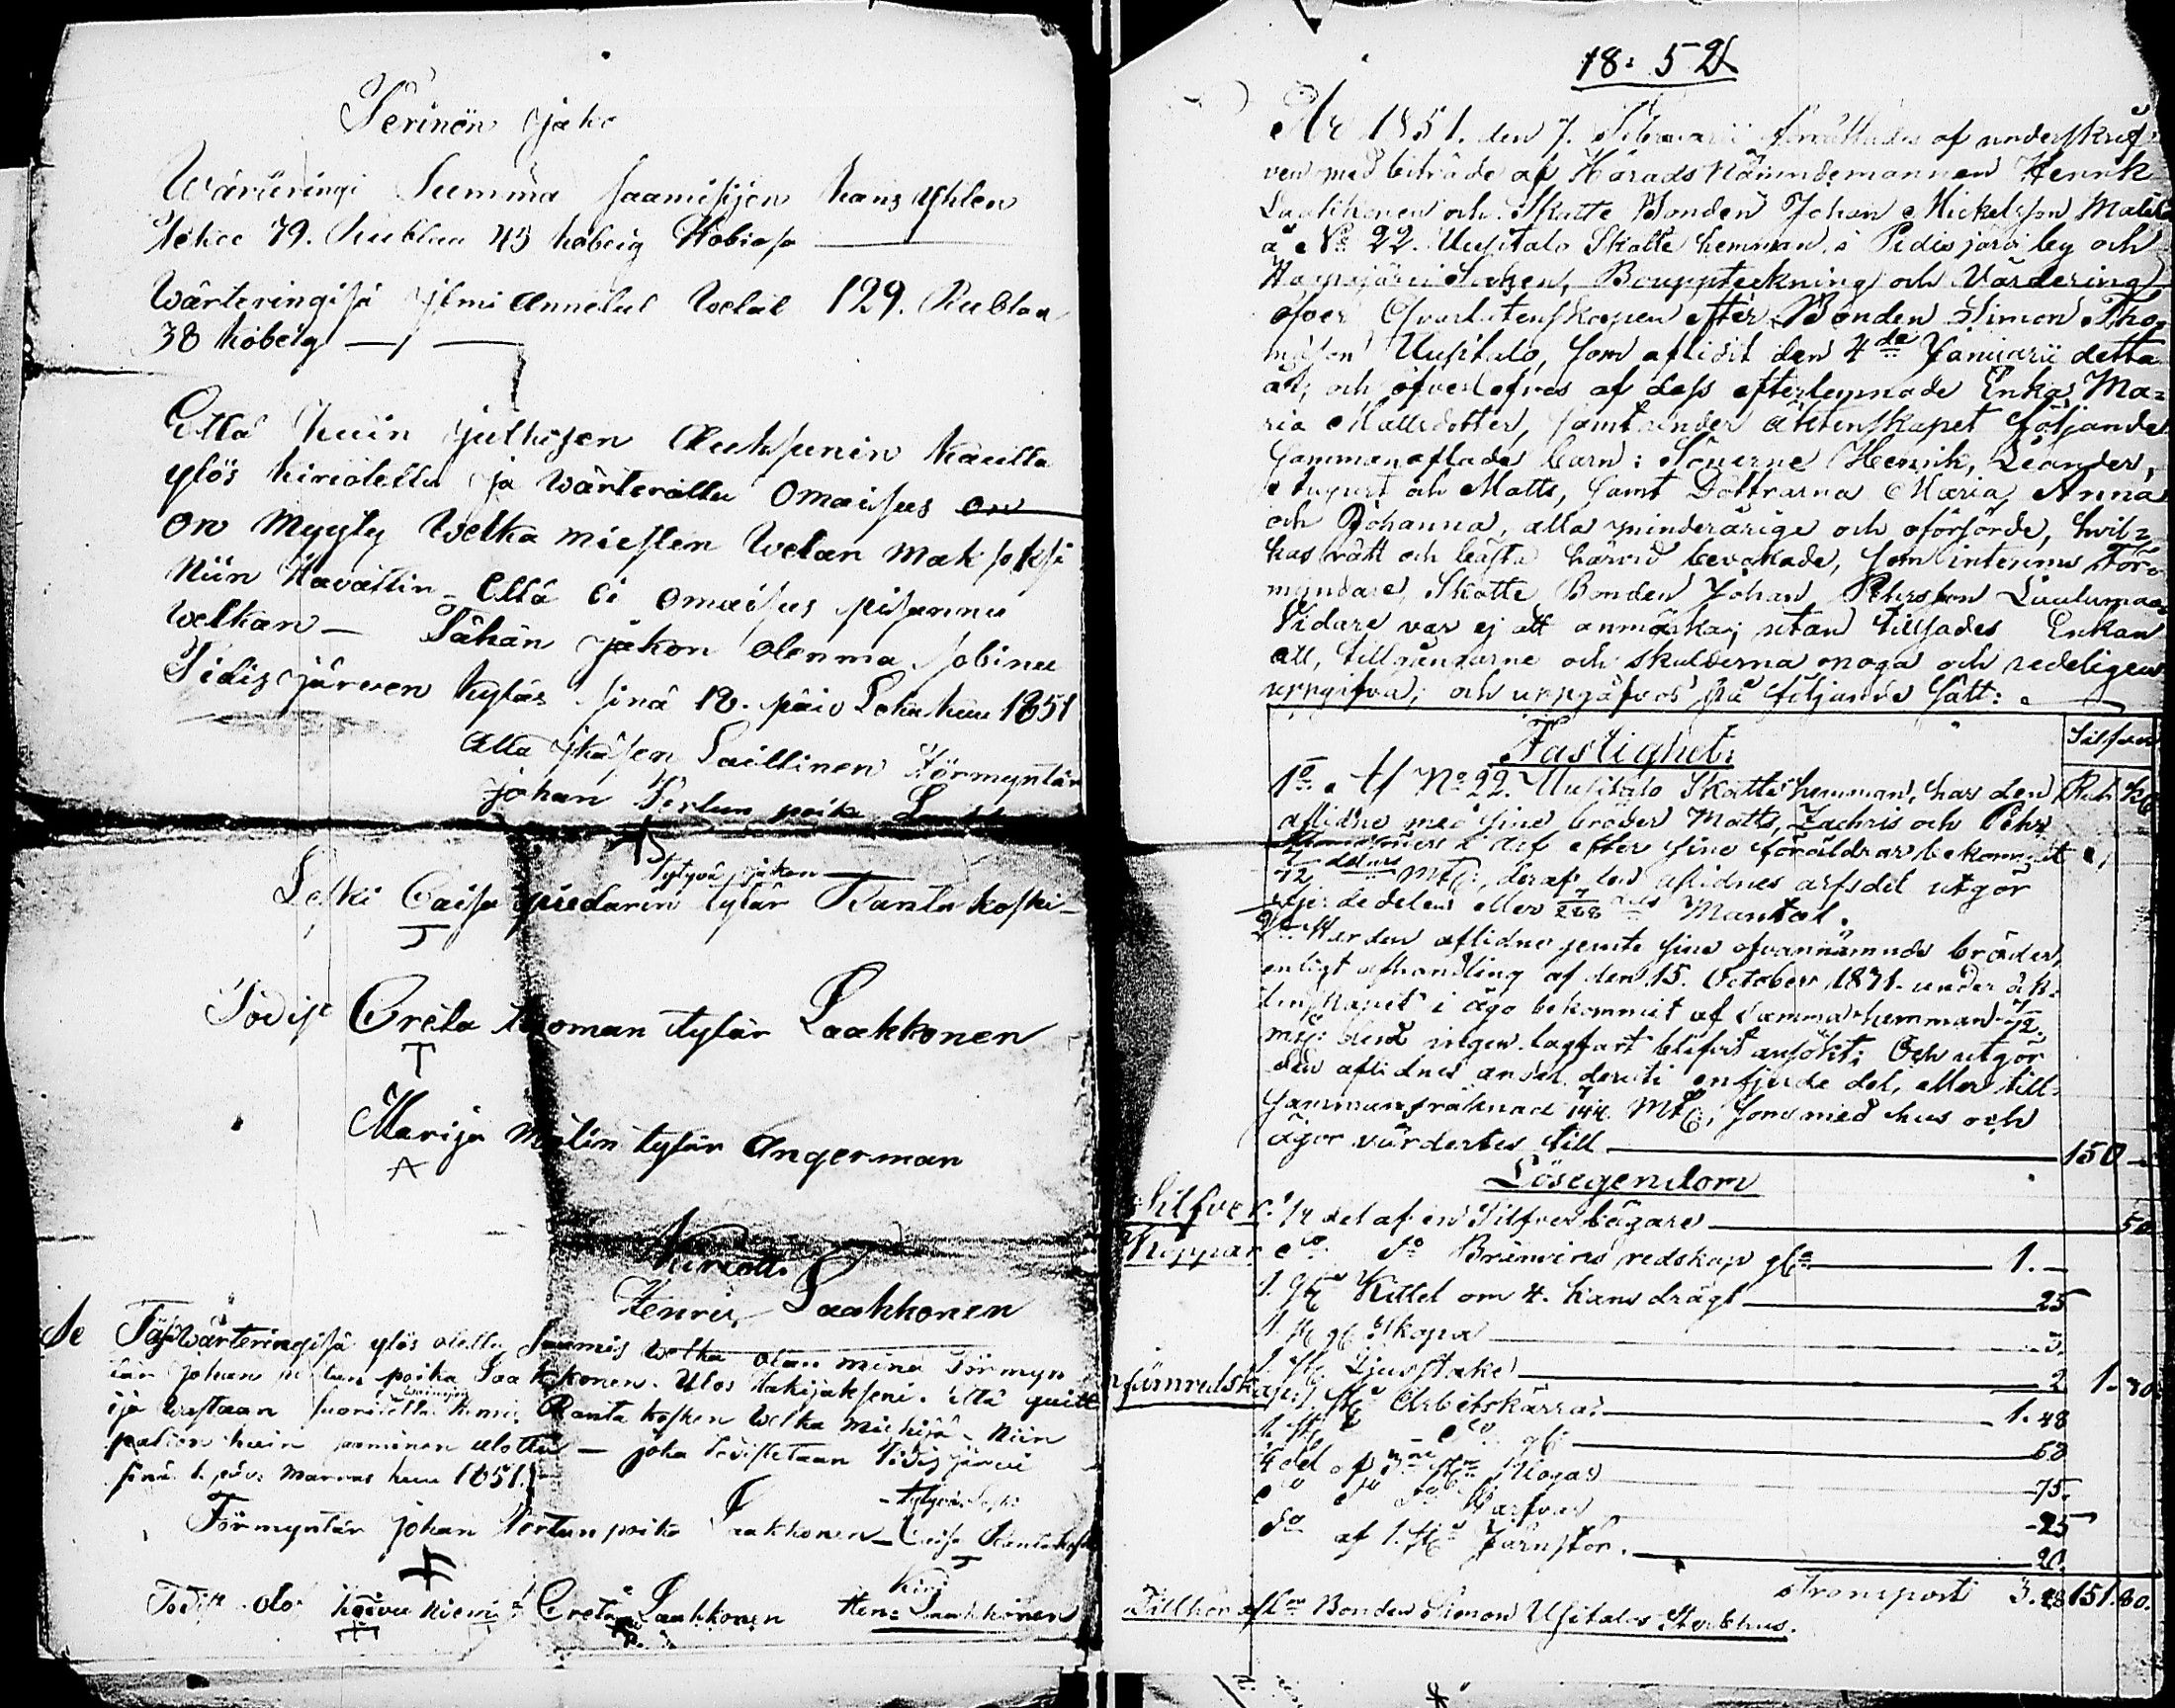 Perinön jako
Wärteringi Summa Saamisijen kansa yhten
tekee 79. Rublaa 45 kobeig Hobiasa
Wärteringisä ilmi annetut Welat 129. Rublaa
38 kobeig
Että kuin julkisen Auksunin kautta
ylös kiriotettu ja Wärterattu Omaisus on
on Myyty Welka miesten Welan mak soksi
Niin Havattin Että Ei omaisus pisannu
Welkan — Tähän jakon olemma sobinu
Pidisjärwen kyläs sinä 18. päiv Lokakuu 1851
Alla ikäsen Laillinen Förmyntär
Johan Pertun poika
tytyvä jakon
Leski Caisa priedarin tytär Rantakoski
Todist Greta tuoman tytär Laakkonen
Marija Matin tytär Angerman
Kirioitti
Henric Laakkonen
Se Täsä Wärteringisä ylös otettu Saamis Welka olan minä Förmyn
tär Johan Pertun poika Laakkonen. Ulos Hakijakseni. Että quitt
ija Wastaan Rantakosken Welka Miehijä - Niin
palion kuin saaminen ulottu — joka Todistetaan Pidisjärwi
sinä 1. päiv. Marras kuu 1851.
tytyvä Leski
Förmyntär Johan Pertun poika Laakkonen — Caisa Rantakoski
Kirj
Todist. Greta Laakkonen Hen: Laakkonen
18: 52
År 1851. den 7. Februarii förrättades af underskrif-
ven med biträde af Härads Nämndemannen Henrik
Laatikonen och Skatte Bonden Johan Mickelsson
å No 22. Uusitalo Skatte hemman i Pidisjärvi by och
Haapajärvi Socken, Bouppteckning och Värdering
öfver Qvarlåtenskapen efter Bonden Simon Tho-
masson Uusitalo, som aflidit den 4de Januarii detta
år; och öfverlefves af dess efterlemnade Enka Ma-
ria Mattsdotter, samt under äktenskapet följande
sammanaflade barn: Sönerne Henrik, Leander,
August och Matts, samt Döttrarna Maria, Anna
och Johanna, alla minderårige och oförsörde, hvil-
kas rätt och bästa härvid bevakade, som interims För-
myndare, Skatte Bonden Johan Pehrsson
Vidare var ej att anmärka; utan tillsades Enkan
att, tillgångarne och skulderna noga och redeligen
uppgifva; och uppgåfvos på följande sätt:
Silfver
Fastighet:
Rub. Kop
1o Af No 22. Uusitalo Skatte hemman, har den
aflidne med sine bröder Matts, Zachris och Pehr
i arf efter sine föräldrar bekommit
7/72 delars Mtl:, deraf den aflidnes arfsdel utgör
fjerdedelen eller 7/288 dels Mantal.
2o Har den aflidne jemte sine ofvannämnde bröder,
enligt afhandling af den 15. October 1831. under äk-
tenskapet i ägo bekommit af samma hemman 7/72
Mtl: derå ingen lagfart blifvit ansökt; Och utgör
den aflidnes andel deruti en fjerde del, eller till-
sammansräknad 7/144 Mtl:, som med hus och
ägor värdertes till 150 —
Lösegendom
Silfver. 1/4 del af en Silfver bägare 50
Koppar do do Bränvins redskap gl: 1. —
1. gl: Kittel om 4. kans drägt 25
1. st: gl: Skopa 3.
1 st: Ljusstake 2 1. 30
Körnredskap: 1 st: Arbetskärra 1. 48
1. st: do gl: 60
1/4 del af Plogar 75.
do do Harfvar 25
do af 1. st: Järnstör. 20.
Transport 3. 28 151. 80.
Tillhör afl: Bonden Simon Usitalos Sterbhus.